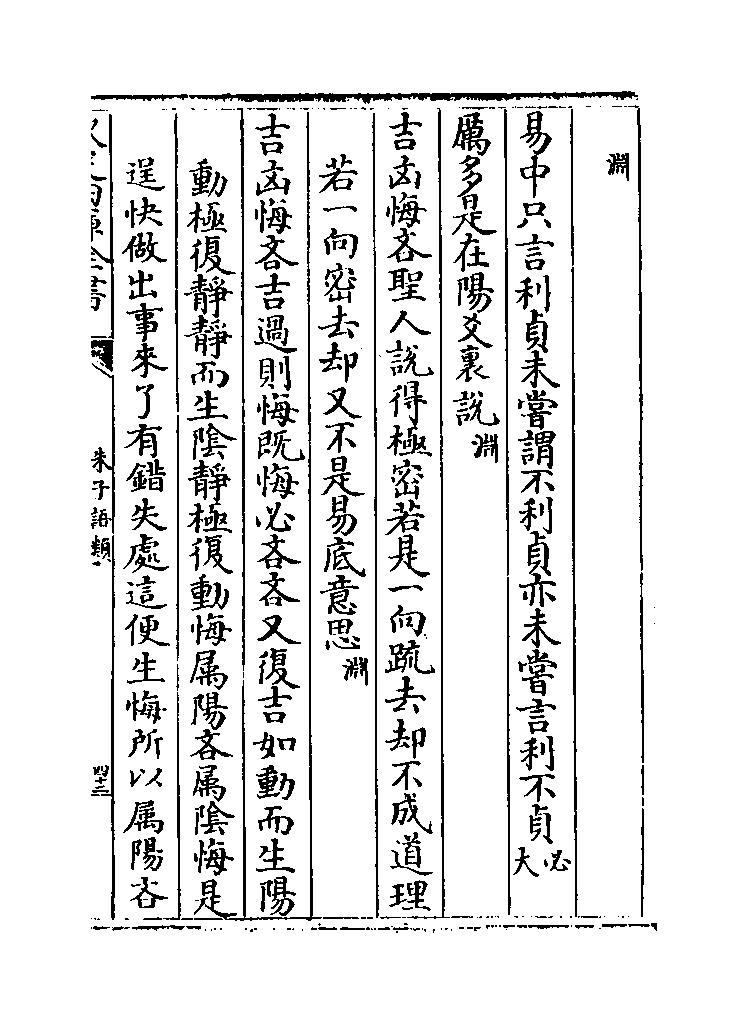 淵
易中只言利貞未嘗謂不利貞亦未嘗言利不貞必大
厲多是在陽爻裏説淵
吉凶悔吝聖人説得極密若是一向疏去却不成道理
若一向密去却又不是易底意思淵
吉凶悔吝吉過則悔既悔必吝吝又復吉如動而生陽
動極復靜靜而生陰靜極復動悔属陽吝属陰悔是
逞快做出事來了有錯失處這便生悔所以属陽吝
朱子語類
四十三